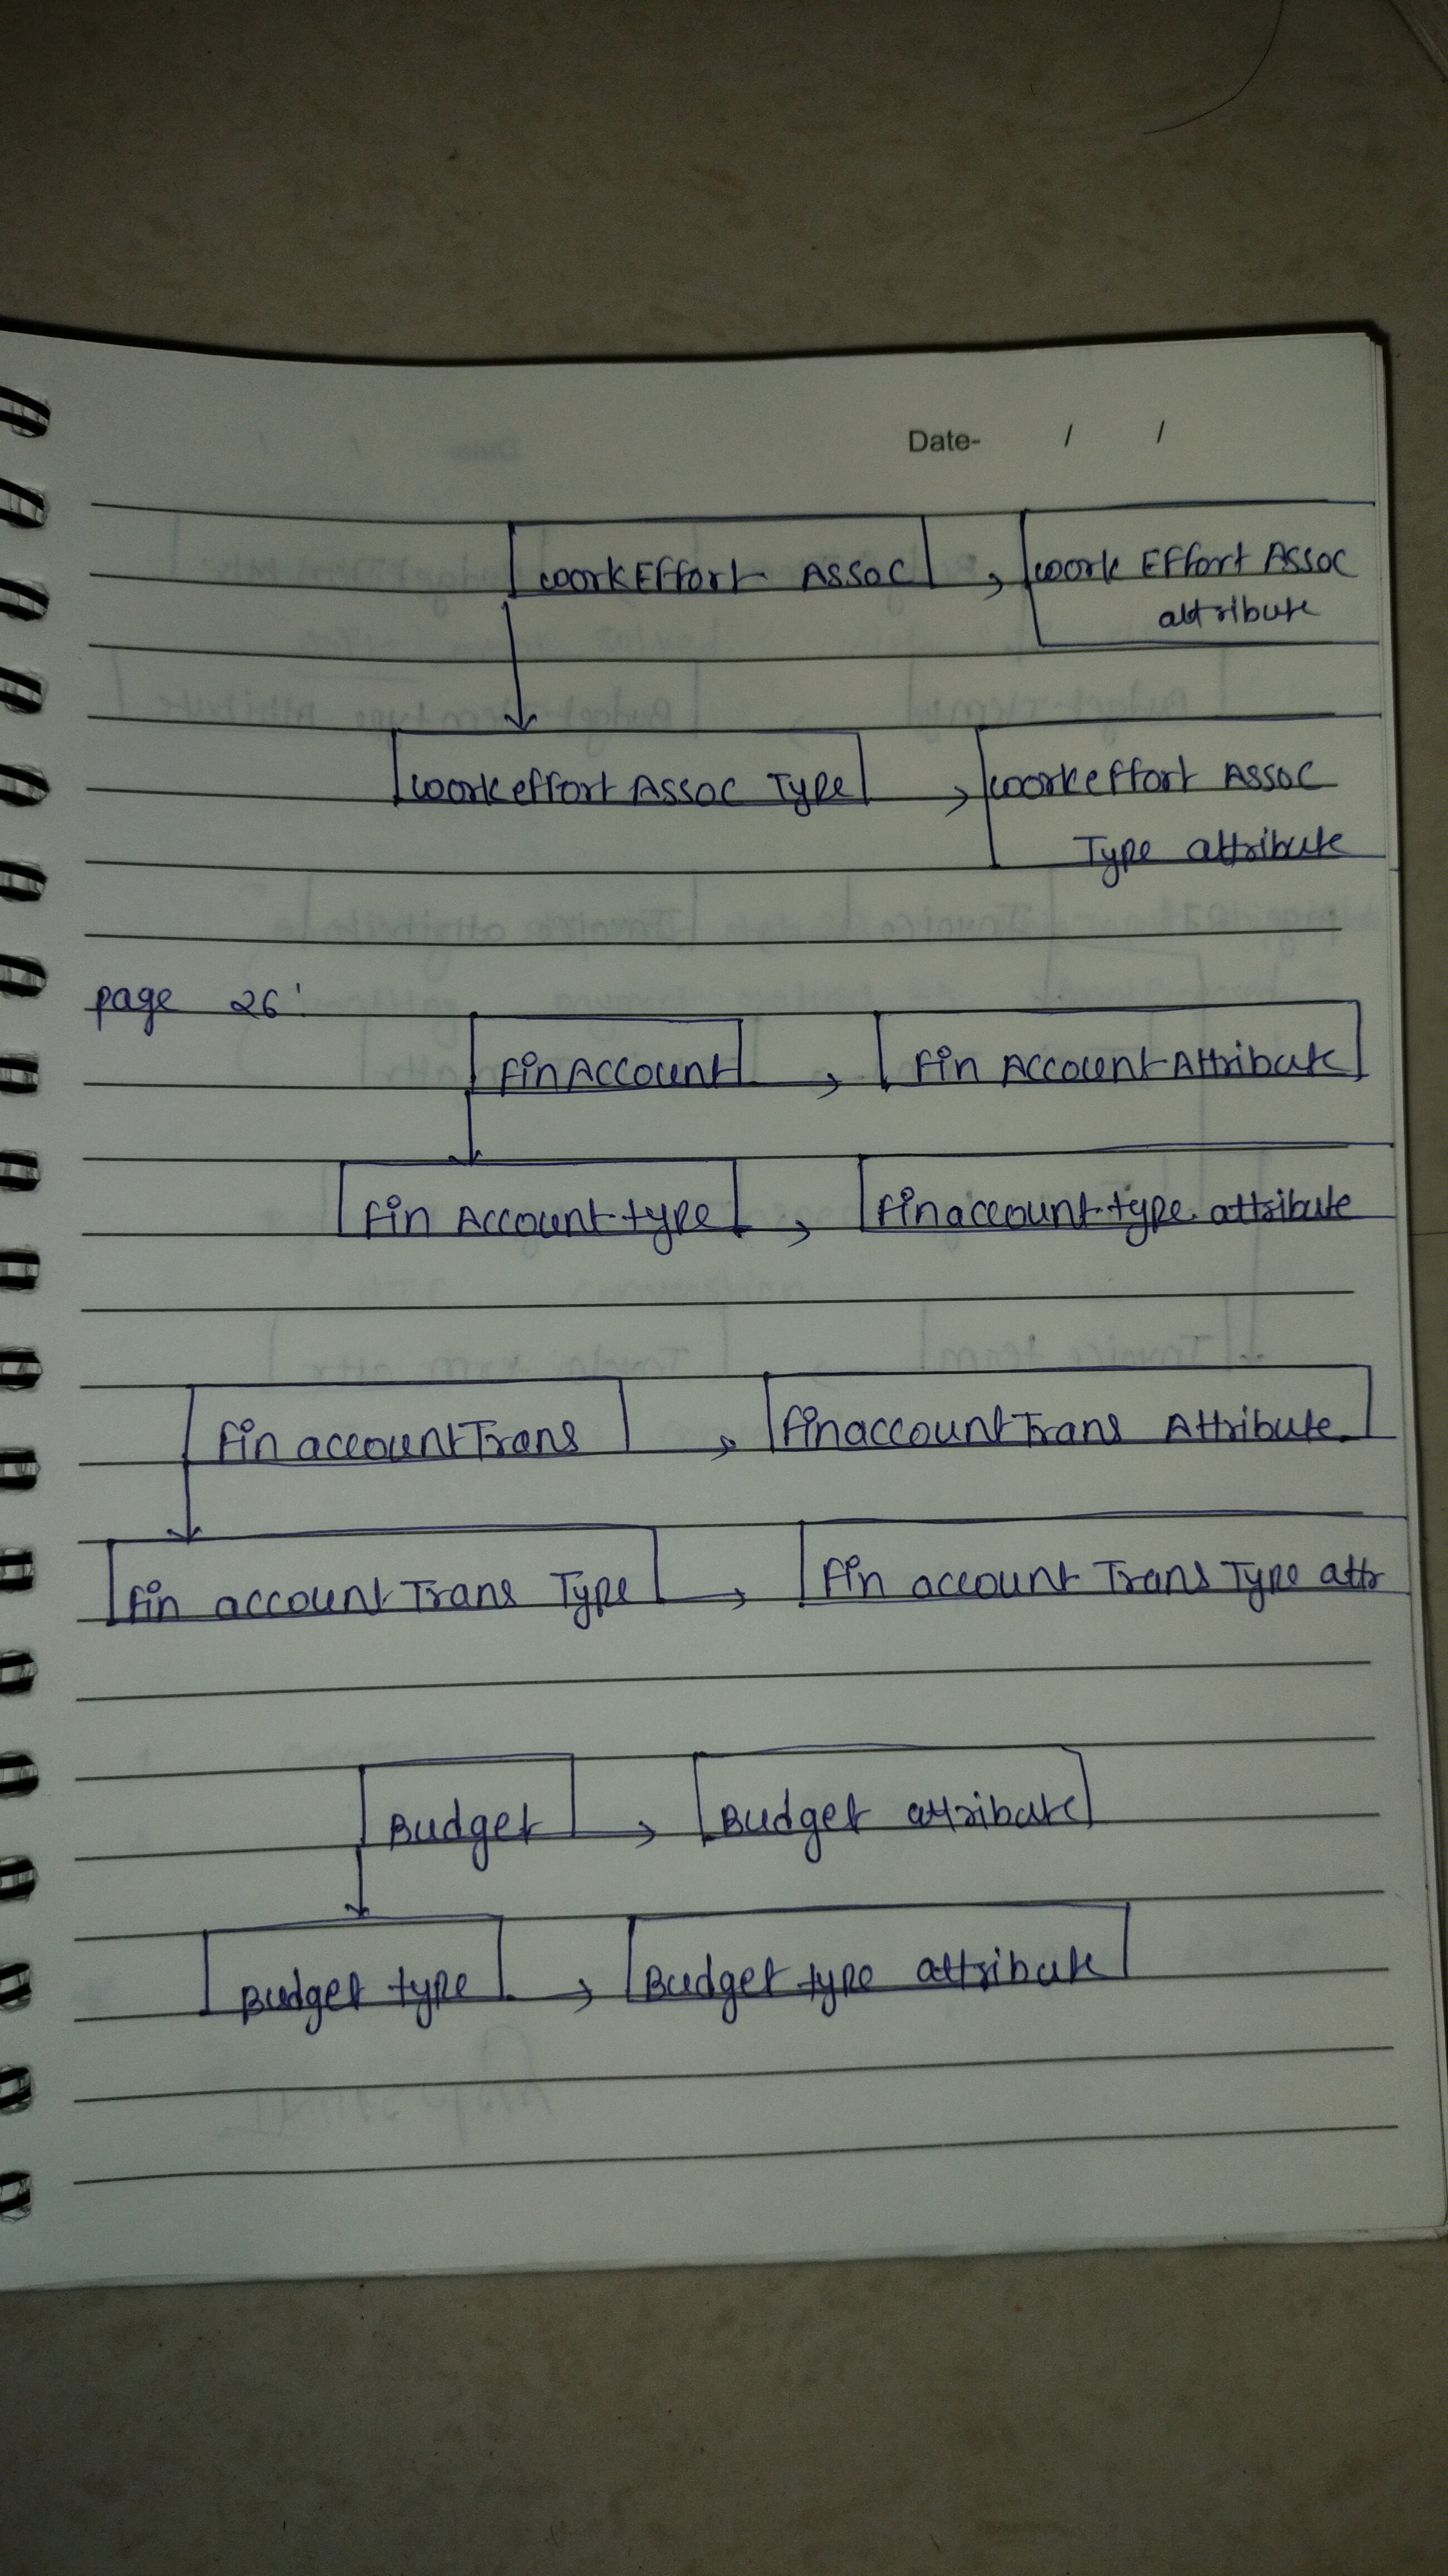 Date- / /
WorkEffort Assoc work Effort Assoc
attribute
workeffort Assoc Type workeffort Assoc
Type attribute
page 26:
fin Account fin Account Attribute
fin Account type finaccount type attribute
fin accountTrans finaccountTrans Attribute
fin account Trans Type fin account Trans Type attr
Budget Budget attribute
Budget type Budget type attribute